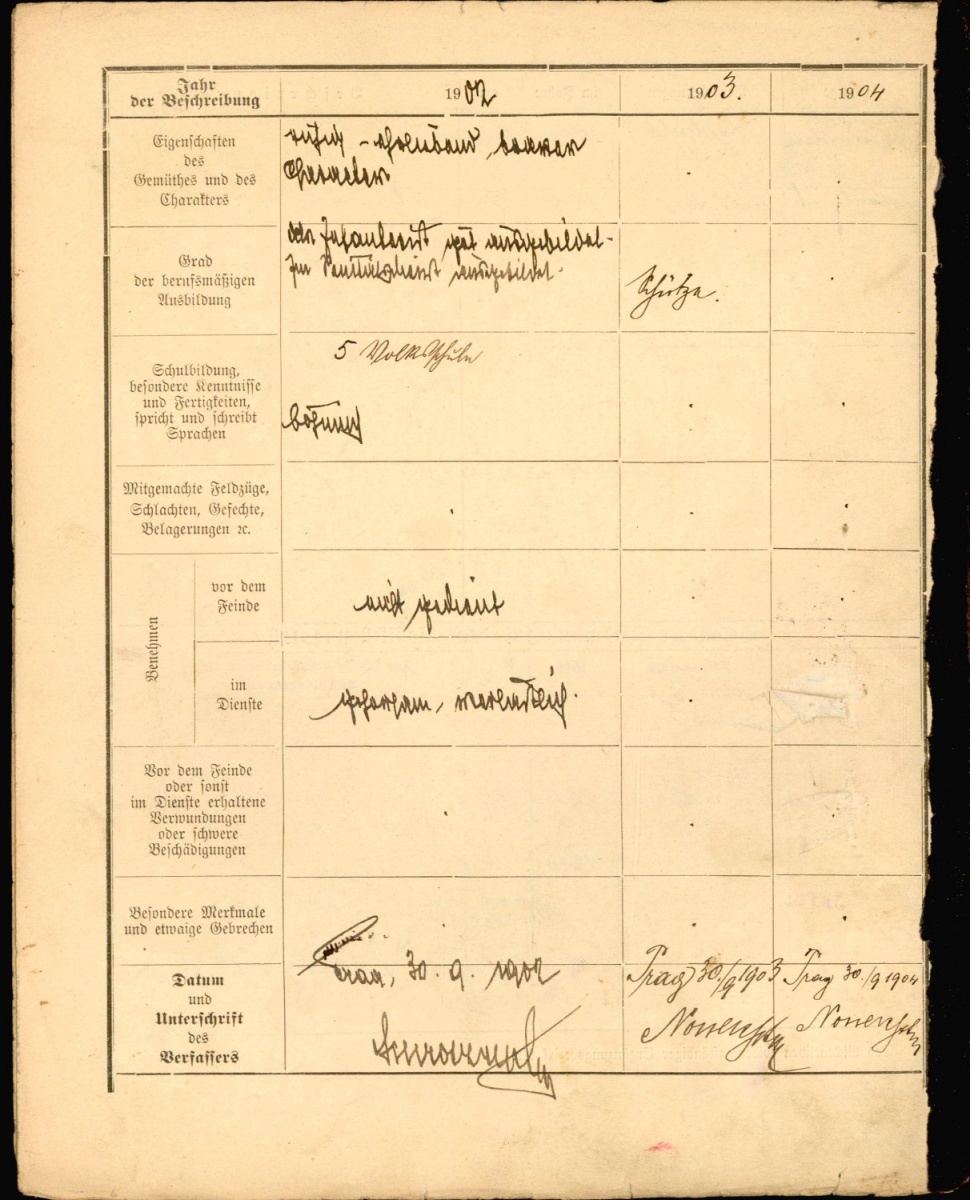 Jahr
der Beschreibung
1902
1903.
1904
Eigenschaften
des
Gemüthes und des
Charakters
ruhig - ehrliebend, braver
Character
Grad
der berufsmäßigen
Ausbildung
als Infanterist gut ausgebildet -
Im Sanitätsdienst ausgebildet -
Schütze.
Schulbildung,
besondere Kenntnisse
und Fertigkeiten,
spricht und schreibt
Sprachen
5 Volksschule
böhmisch
Mitgemachte Feldzüge,
Schlachten, Gefechte,
Belagerungen ꝛc.
Benehmen
vor dem
Feinde
nicht gedient
im
Dienste
gehorsam, verläßlich.
Vor dem Feinde
oder sonst
im Dienste erhaltene
Verwundungen
oder schwere
Beschädigungen
Besondere Merkmale
und etwaige Gebrechen
Datum
und
Unterschrift
des
Verfassers
Prag, 30. 9. 1902
Prag 30./9 1903
Prag 30./9 1904